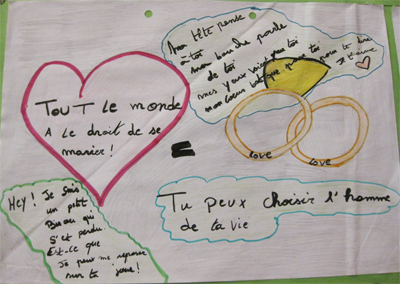 Ma tête pense
à toi
mon bouche parle
de toi
mes yeux voient que toi
mon coeur bat que pour toi pour te dire
Je t'aime
TOUT le monde
A le droit de se
marier!
=
love
love
Hey! Je suis
un petit
Bisou qui
s'est perdu.
Est-ce que
Je peux me reposer
sur ta joue!
Tu peux choisir l'homme
de ta vie